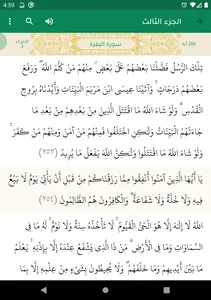 4:59
الجزء الثالث
286 آية
سورة البقرة
الجزء
3
تِلْكَ الرُّسُلُ فَضَّلْنَا بَعْضَهُمْ عَلَىٰ بَعْضٍ ۘ مِنْهُمْ مَنْ كَلَّمَ اللَّهُ ۖ وَرَفَعَ
بَعْضَهُمْ دَرَجَاتٍ ۚ وَآتَيْنَا عِيسَى ابْنَ مَرْيَمَ الْبَيِّنَاتِ وَأَيَّدْنَاهُ بِرُوحِ
الْقُدُسِ ۗ وَلَوْ شَاءَ اللَّهُ مَا اقْتَتَلَ الَّذِينَ مِنْ بَعْدِهِمْ مِنْ بَعْدِ مَا
جَاءَتْهُمُ الْبَيِّنَاتُ وَلَٰكِنِ اخْتَلَفُوا فَمِنْهُمْ مَنْ آمَنَ وَمِنْهُمْ مَنْ كَفَرَ ۚ
وَلَوْ شَاءَ اللَّهُ مَا اقْتَتَلُوا وَلَٰكِنَّ اللَّهَ يَفْعَلُ مَا يُرِيدُ (٢٥٣)
يَا أَيُّهَا الَّذِينَ آمَنُوا أَنْفِقُوا مِمَّا رَزَقْنَاكُمْ مِنْ قَبْلِ أَنْ يَأْتِيَ يَوْمٌ لَا بَيْعٌ
فِيهِ وَلَا خُلَّةٌ وَلَا شَفَاعَةٌ ۗ وَالْكَافِرُونَ هُمُ الظَّالِمُونَ (٢٥٤)
اللَّهُ لَا إِلَٰهَ إِلَّا هُوَ الْحَيُّ الْقَيُّومُ ۚ لَا تَأْخُذُهُ سِنَةٌ وَلَا نَوْمٌ ۚ لَهُ مَا فِي
السَّمَاوَاتِ وَمَا فِي الْأَرْضِ ۗ مَنْ ذَا الَّذِي يَشْفَعُ عِنْدَهُ إِلَّا بِإِذْنِهِ ۚ يَعْلَمُ
مَا بَيْنَ أَيْدِيهِمْ وَمَا خَلْفَهُمْ ۖ وَلَا يُحِيطُونَ بِشَيْءٍ مِنْ عِلْمِهِ إِلَّا بِمَا